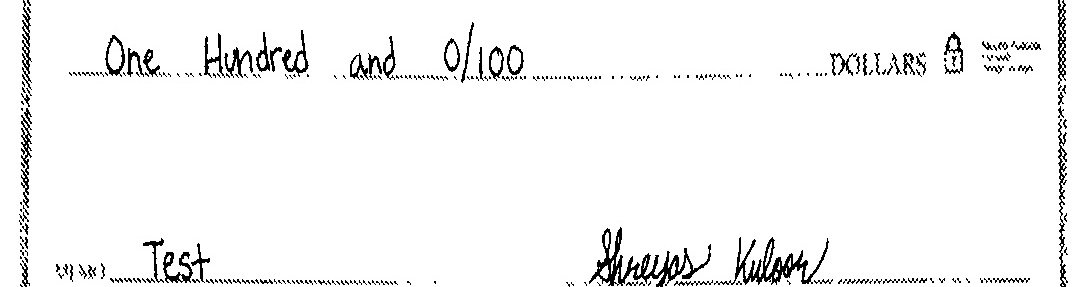 One Hundred and 0/100 DOLLARS
MEMO Test Shreyas Kuloor